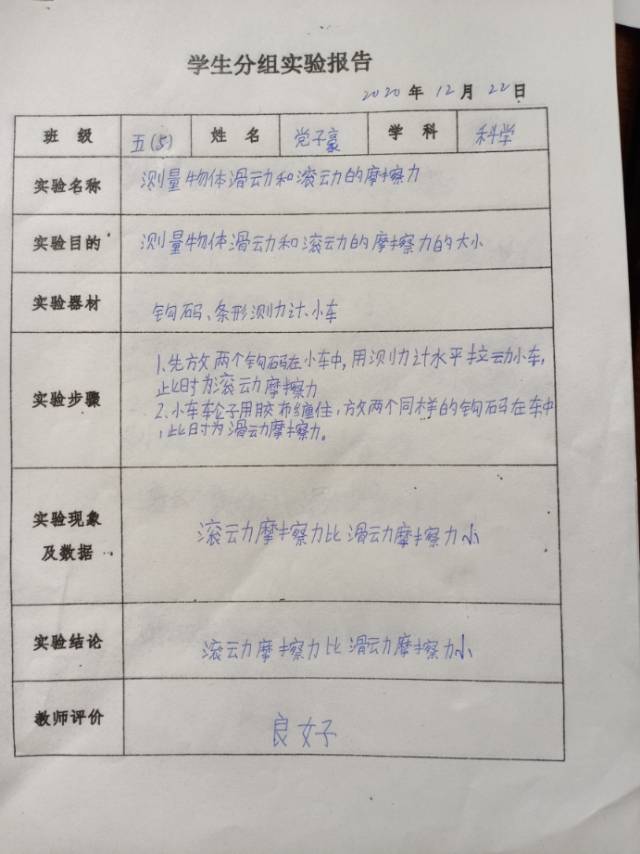 学生分组实验报告
2020年12月22日
班级 五(5) 姓名 党子豪 学科 科学
实验名称 测量物体滑动和滚动的摩擦力
实验目的 测量物体滑动和滚动的摩擦力的大小
实验器材 钩码、条形测力计、小车
实验步骤 1.先放两个钩码在小车中,用测力计水平拉动小车,
此时为滚动摩擦力
2.小车车轮子用胶布缠住,放两个同样的钩码在车中
,此时为滑动摩擦力。
实验现象
及数据
滚动摩擦力比滑动摩擦力小
实验结论 滚动摩擦力比滑动摩擦力小
教师评价 良好